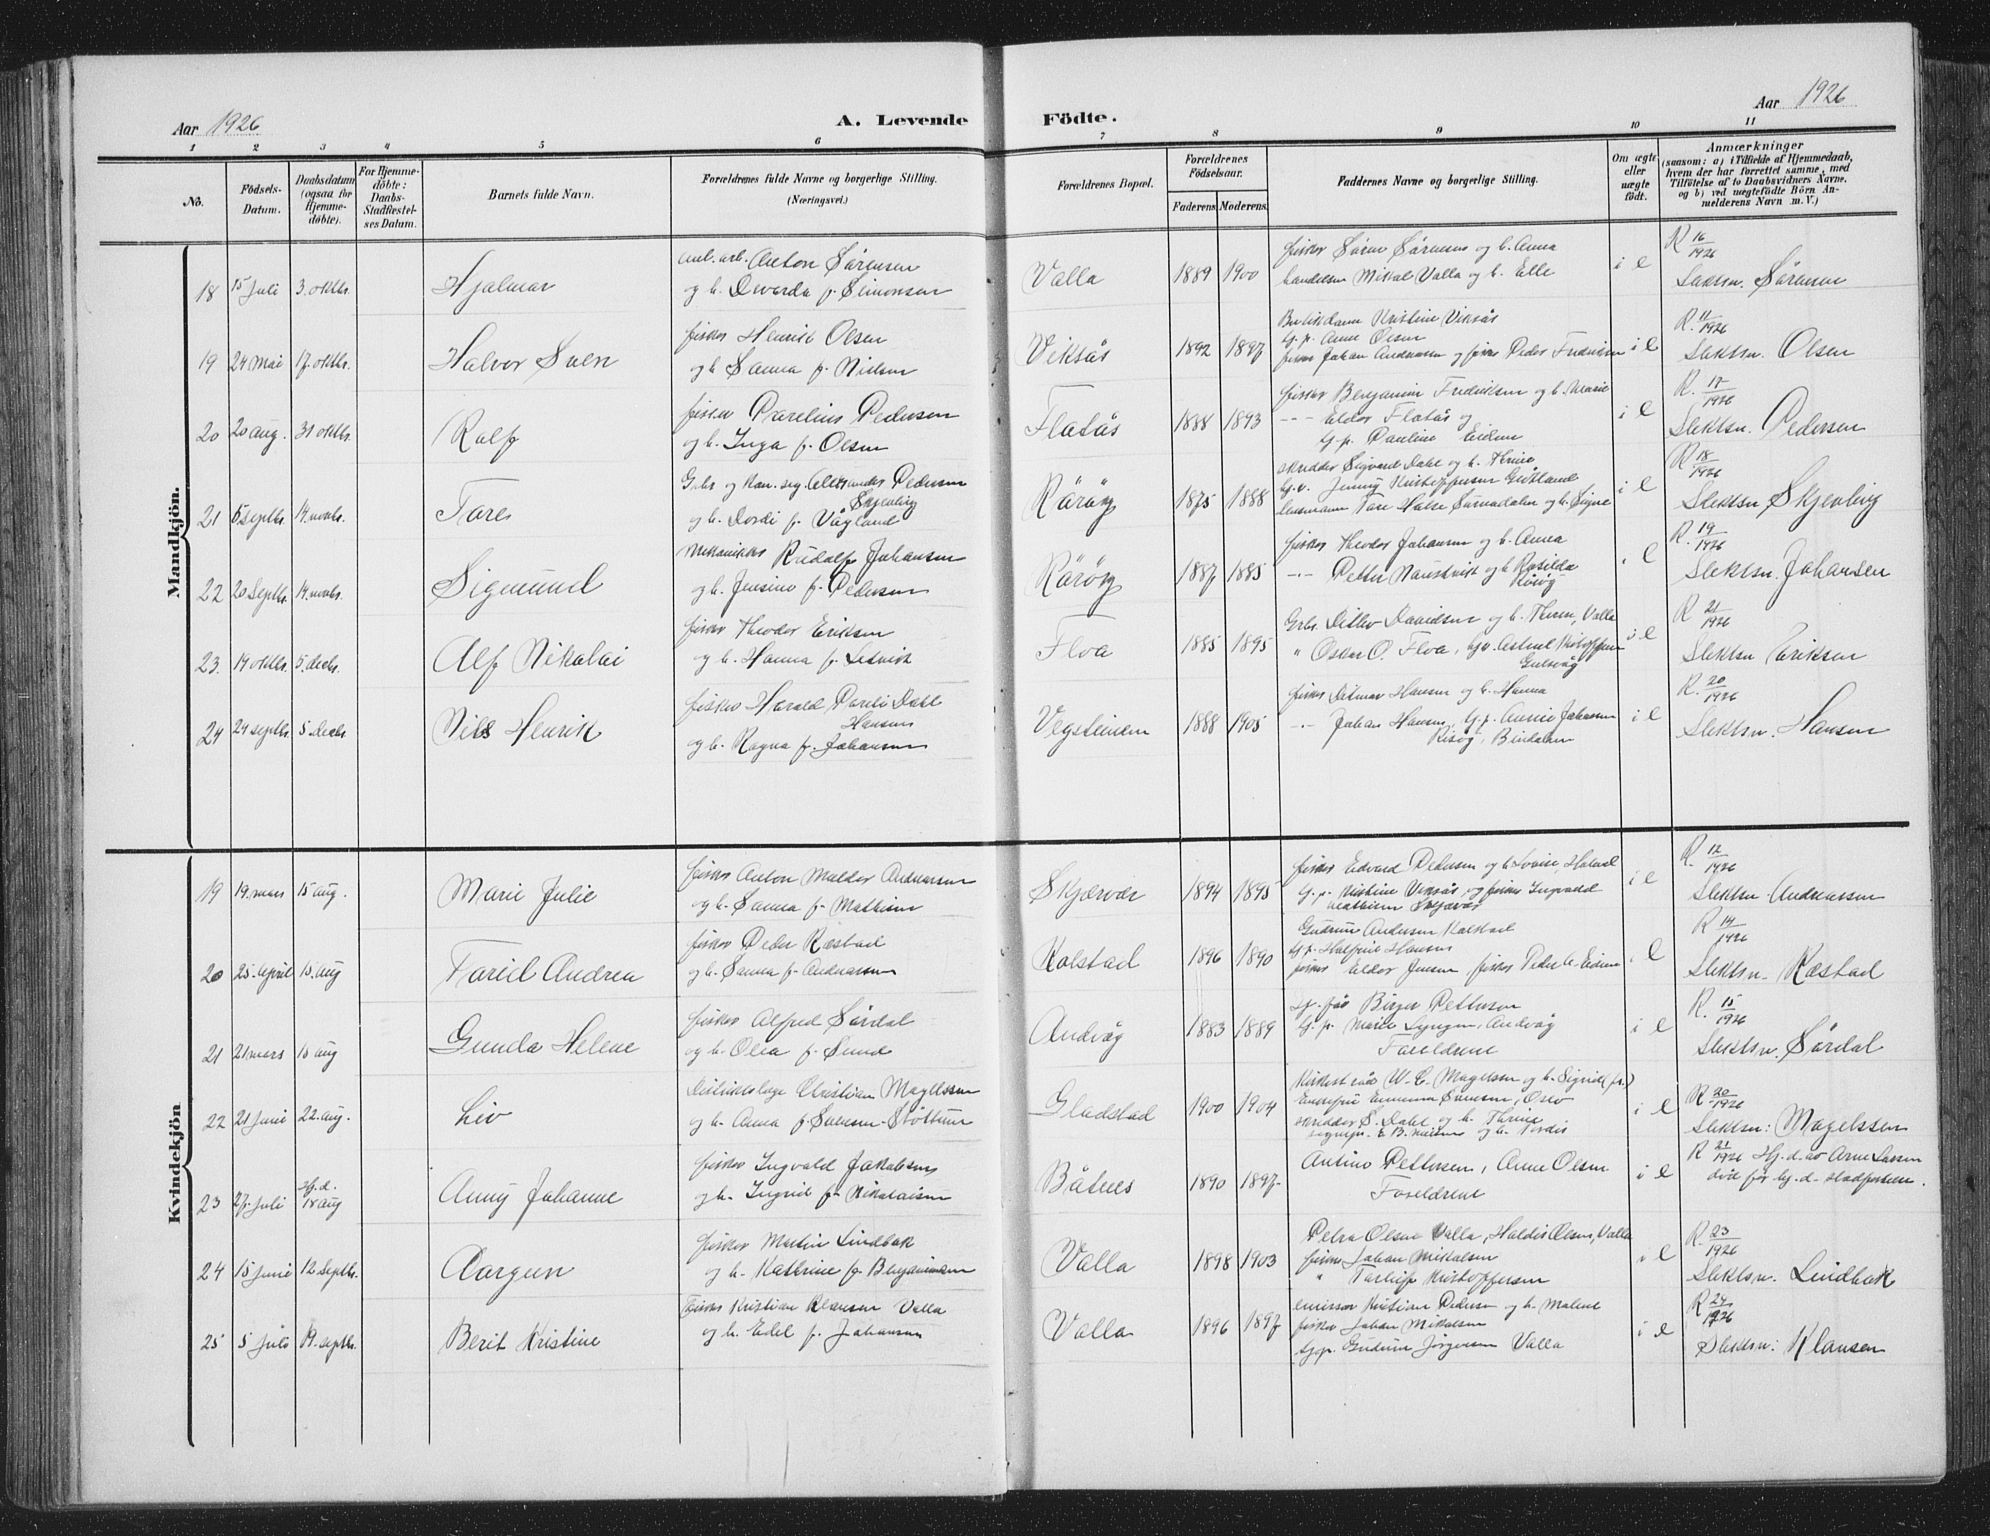 Aar 1926
A. Levende Födte.
Aar 1926
1 2 3 4 5 6 7 8 9 10 11
No.
Födsels-Datum.
Daabsdatum (ogsaa for Hjemme-döbte).
For Hjemme-döbte: Daabs-Stadfæstel-ses Datum.
Barnets fulde Navn.
Forældrenes fulde Navne og borgerlige Stilling.
(Næringsvei.)
Forældrenes Bopæl.
Forældrenes Födselsaar.
Faderens. Moderens.
Faddernes Navne og borgerlige Stilling.
Om ægte eller uægte födt.
Anmærkninger
(saasom: a) i Tilfælde af Hjemmedaab,
hvem der har forrettet samme, med
Tilföielse af to Daabsvidners Navne.
og b) ved uægtefödte Börn An-
melderens Navn m. V.)
Mandkjön.
18 15 juli 3. oktbr. Hjalmar
Anton Sørensen
og h. Devarda f. Simonsen
Valla 1889 1900
fisker Søren Sørensen og h. Anna
Mikal Valla og h. Elle
i e
R 16/1926
Slektsn. Sørensen
19 24 mai 17. oktbr. Halvor Sven
fisker Henrik Olsen
og h. Sanna f. Nielsen
Viksås 1892 1897
Kristine Viksås
Gp. Anne Olsen
fisker Johan Andreassen og fisker Peder Fredriksen
i e
R. 11/1926
Slektsn. Olsen
20 20 aug. 31 oktbr. Rolf
fisker Parelius Pedersen
og h. Inga f. Olsen
Flatås 1888 1893
fisker Benjamin Fredriksen og h. Marie
-"- Eldor Flatås og
Gp. Pauline Eidem
i e
R. 17/1926
Slektsn. Pedersen
21 5 septbr. 14. novbr. Tore
Gbr og Pedersen
Skjevling
og h. Dordi f. Vågland
Rårøy 1875 1888
skredder Sigvard Dahl og h. Thrine
Jenny Kristoffersen
lensmann Tore Halse Surnadalen og h. Signe
i e
R. 18/1926
Slektsn Skjevling
22 20 septbr. 14. novbr. Sigmund
mekaniker Rudolf Johansen
og h. Jensine f. Pedersen
Rårøy 1887 1885
fisker Theodor Johansen og h. Anna
-"- Petter Naustvik og h. Rosilda
i e
R. 19/1926
Slektsn. Johansen
23. 14 oktbr. 5. decbr. Alf Nikolai
fisker Theodor Eriksen
og h. Hanna f. Setvik
Floa 1885 1895
Gbr. Ditlev Davidsen og h. Valla
" Oskar O. Floa,
i e
R 21/1926
Slektsn Eriksen
24 24 septbr. 5 decbr Nils Henrik
fisker Harald Pareli Dahl
Hansen
og h. Ragna f. Johansen
Vegsteinen 1888 1905
fisker Ditmar Hansen og h. Hanna
-"- Johan Hansen, Gp. Annie Johansen
Bindalen
i e
R. 20/1926
Slektsn. Hansen
Kvindekjön
19 19. mars 15 aug. Marie Julie
fisker Anton Maldor Andreassen
og h. Sanna f. Mathisen
Skjærvær 1894 1895
fisker Edvard Pedersen og h. Lovise,
Gp. Kristine Viksås, og fisker Ingvald
Mathisen Skjærvær
i e
R. 12/1926
Slektsn. Andreassen
20 25. april 15. aug Torid Andrea
fisker Peder Kæstad
og h. Sanna f. Andreassen
Kolstad 1896 1890
Gudrun Andersen Kolstad
Gp. Hansen
fisker Eldor Jensen, fisker Peder Eidem
i e
R 14/1926
Slektsn. Kæstad
21 21 mars 15 aug Gunda Helene
fisker Alfred Sørdal
og h. Olea f. Sund
Andvåg 1883 1889
Birger Pettersen
Gp. Marie Lyngen, Andvåg
Foreldrene
i e
R. 15/1926
Slektsn. Sørdal
22 21 juni 22. aug. Liv
Distriktslæge Christian Magelssen
og h. Anna f. Svensen-Støttum
Gladstad 1900 1904
W. C. Magelssen og h. Sigrid (fr.)
Enkefru Emma Svensen, Oslo
skredder S. Dahl og h. Thrine
E. B. og h. Tordis
i e
R. 20/1926
Slektsn: Magelssen
23 27. juli Hj.d. 18 aug Anny Johanne
fisker Ingvald Jakobsen
og h. Ingrid f. Nikolaisen
Båtnes 1890 1897
Antino Pettersen, Anne Olsen
Foreldrene
i e
R 21/1926 Hj. d. av Arne Larsen
død før hj. d. stadfestsen.
24 15 juni 12 septbr. Aargun
fisker Martin Lindbak
og h. Kathrine f. Benjaminsen
Valla 1898 1903
Petra Olsen Valla, Haldis Olsen, Valla
fisker Johan Mikalsen
" Torleif Kristoffersen
i e
R. 23/1926
Slektsn. Lindbak
25 5 juli 19. septbr. Berit Kristine
Fisker Kristian Klausen Valla
og h. Edel f. Johansen
Valla 1896 1897
emissær Kristian Pedersen og h. Malene
fisker Johan Mikalsen
Gp. Gudrun Jørgensen Valla
i e
R 24/1926
Slektsn: Klausen